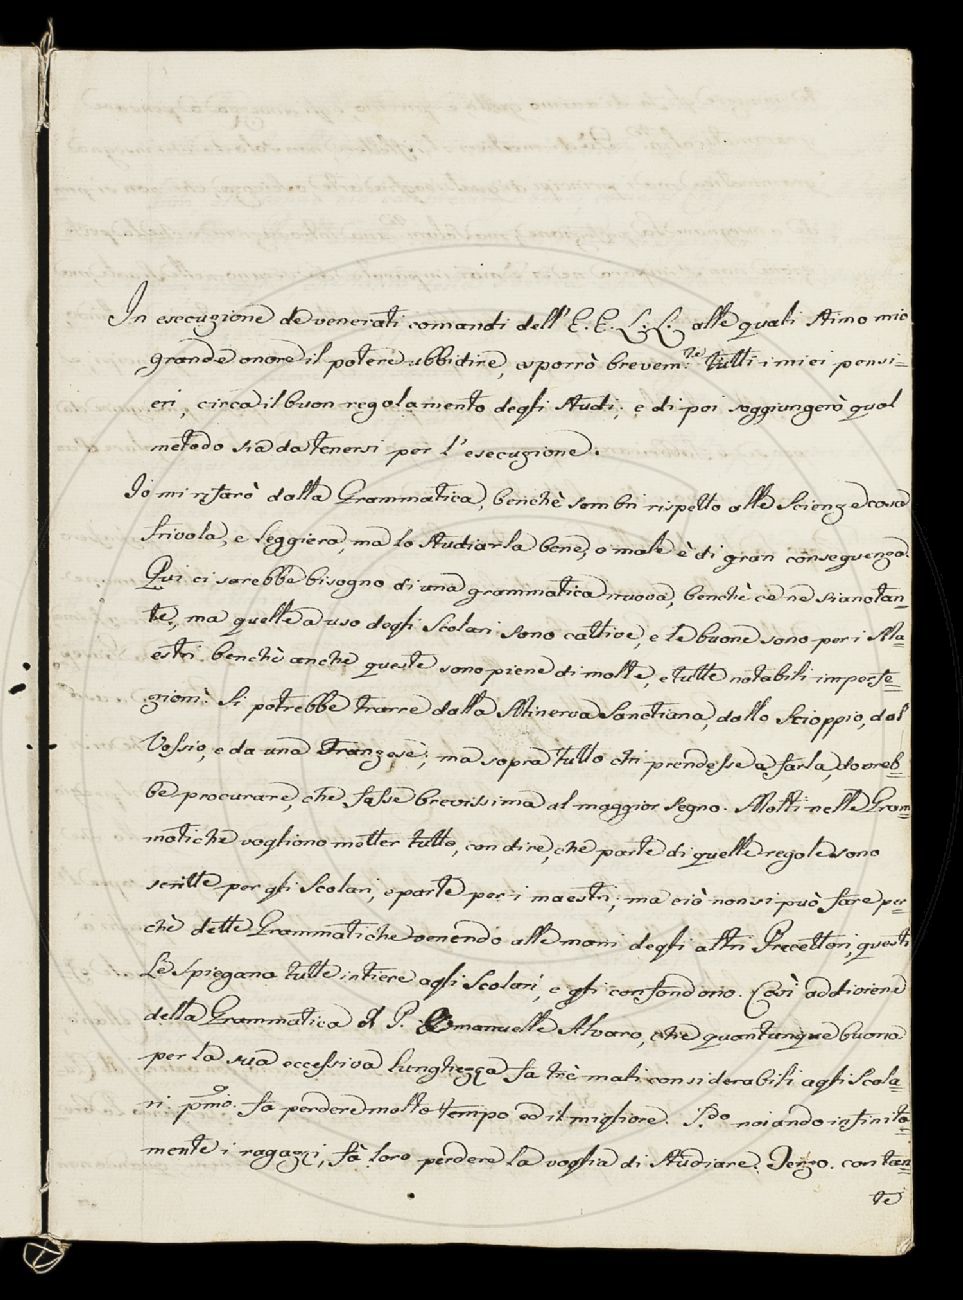 In esecuzione de venerati comandi dell' E. E. L. L. alle quali stimo mio
grande onore il potere ubbidire, esporrò brevem.te tutti i miei pensi=
eri, circa il buon regolamento degli studi; e di poi soggiungerò qual
metodo sia da tenersi per l' esecuzione.
Io mi rifarò dalla Grammatica, benchè sembri rispetto alle Scienze cosa
frivola, e leggiera, ma lo studiarla bene, o male è di gran conseguenza.
Qui ci sarebbe bisogno di una grammatica nuova, benchè ce ne siano tan=
te, ma quelle a uso degli Scolari sono cattive, e le buone sono per i Ma=
estri, benchè anche queste sono piene di molte, e tutte notabili imperfe=
zioni. Si potrebbe trarre dalla Minerva Sanctiana, dallo Scioppio, dal
Vossio, e da una Franzese; ma sopra tutto chi prendesse a farla, dovreb=
be procurare, che fosse brevissima al maggior segno. Molti nelle Gram=
matiche vogliono metter tutto, con dire, che parte di quelle regole sono
scritte per gli Scolari, e parte per i maestri; ma ciò non si può fare per=
chè dette Grammatiche venendo alle mani degli altri Precettori, questi
le spiegano tutte intiere agli Scolari, e gli confondono. Così addiviene
della Grammatica d P. Emanuelle Alvaro, che quantunque buona
per la sua eccessiva lunghezza fa trè mali considerabili agli Scola=
ri p̃mo. fa perdere molto tempo ed il migliore. 2.do noiando infinita=
mente i ragazzi, fà loro perdere la voglia di studiare. Terzo. con tan=
te